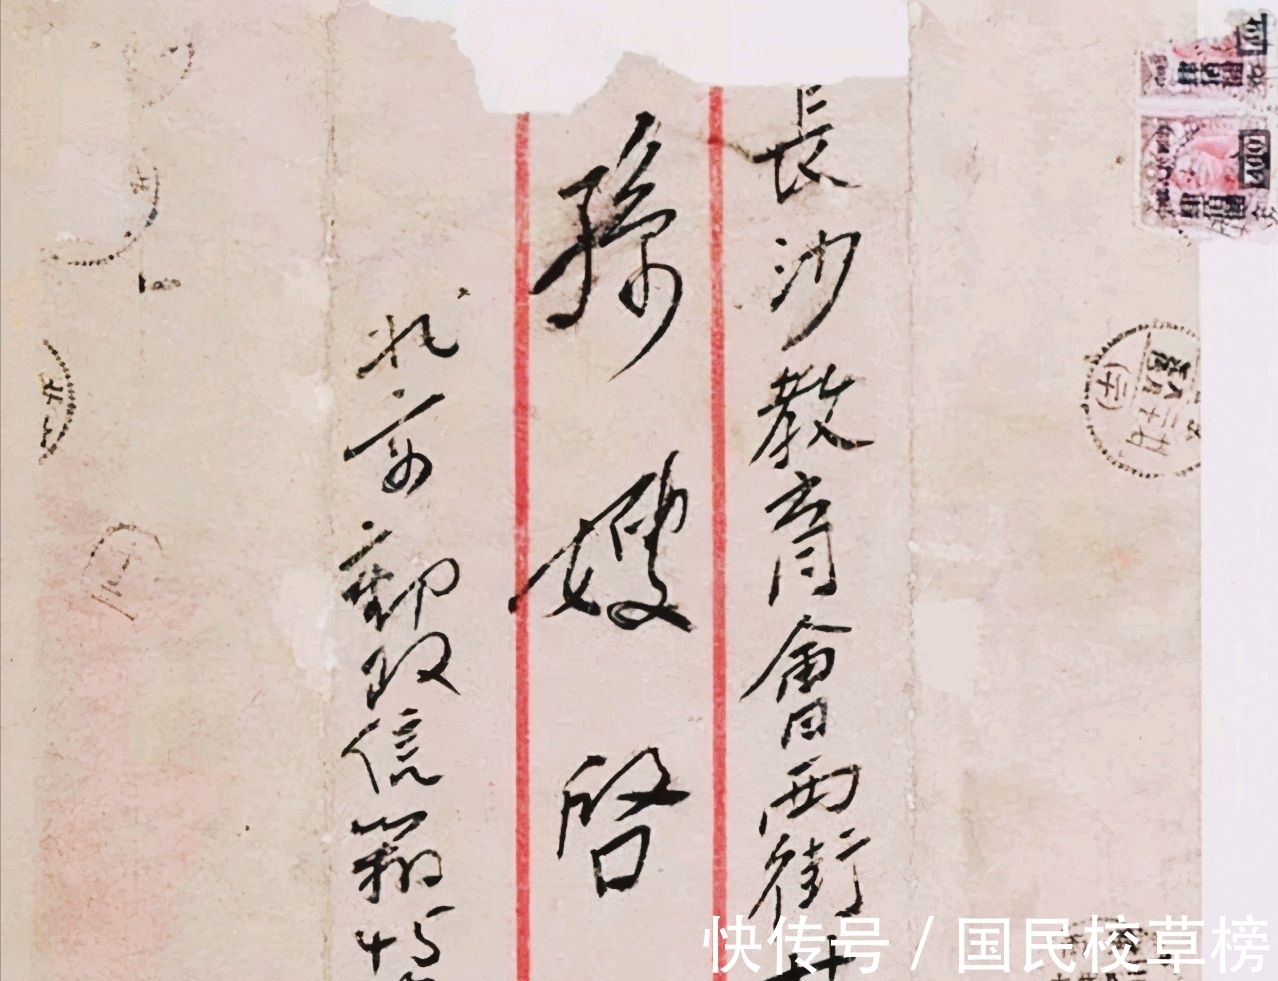 長沙教育會西街
孫嫂啓
北京郵政信箱
快传号 / 国民校草榜